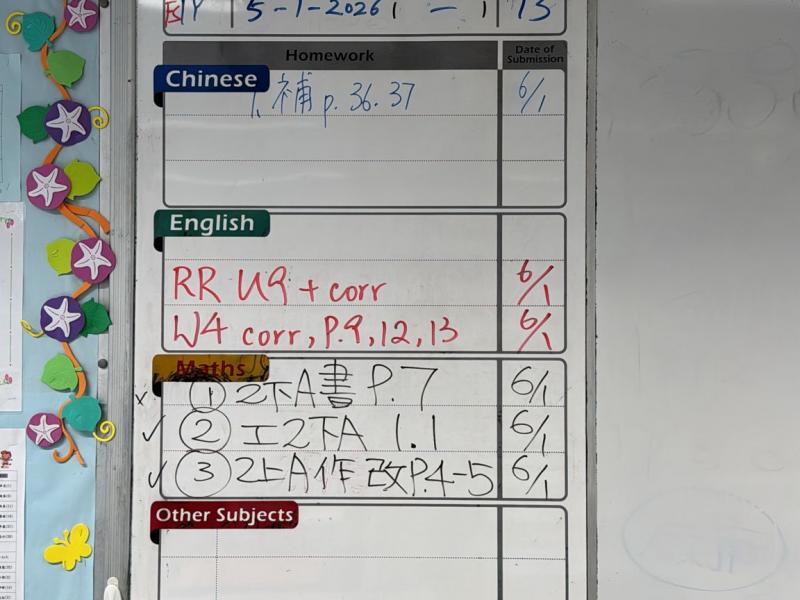 5-1-2026 ( 一 ) 13
Homework Date of Submission
Chinese
1. 補 p. 36. 37 6/1
English
RR U9 + corr 6/1
W4 corr, P.9, 12, 13 6/1
Maths
x ① 2下A書 P.7 6/1
✓ ② 工2下A 1.1 6/1
✓ ③ 2上A作 改P.4-5 6/1
Other Subjects